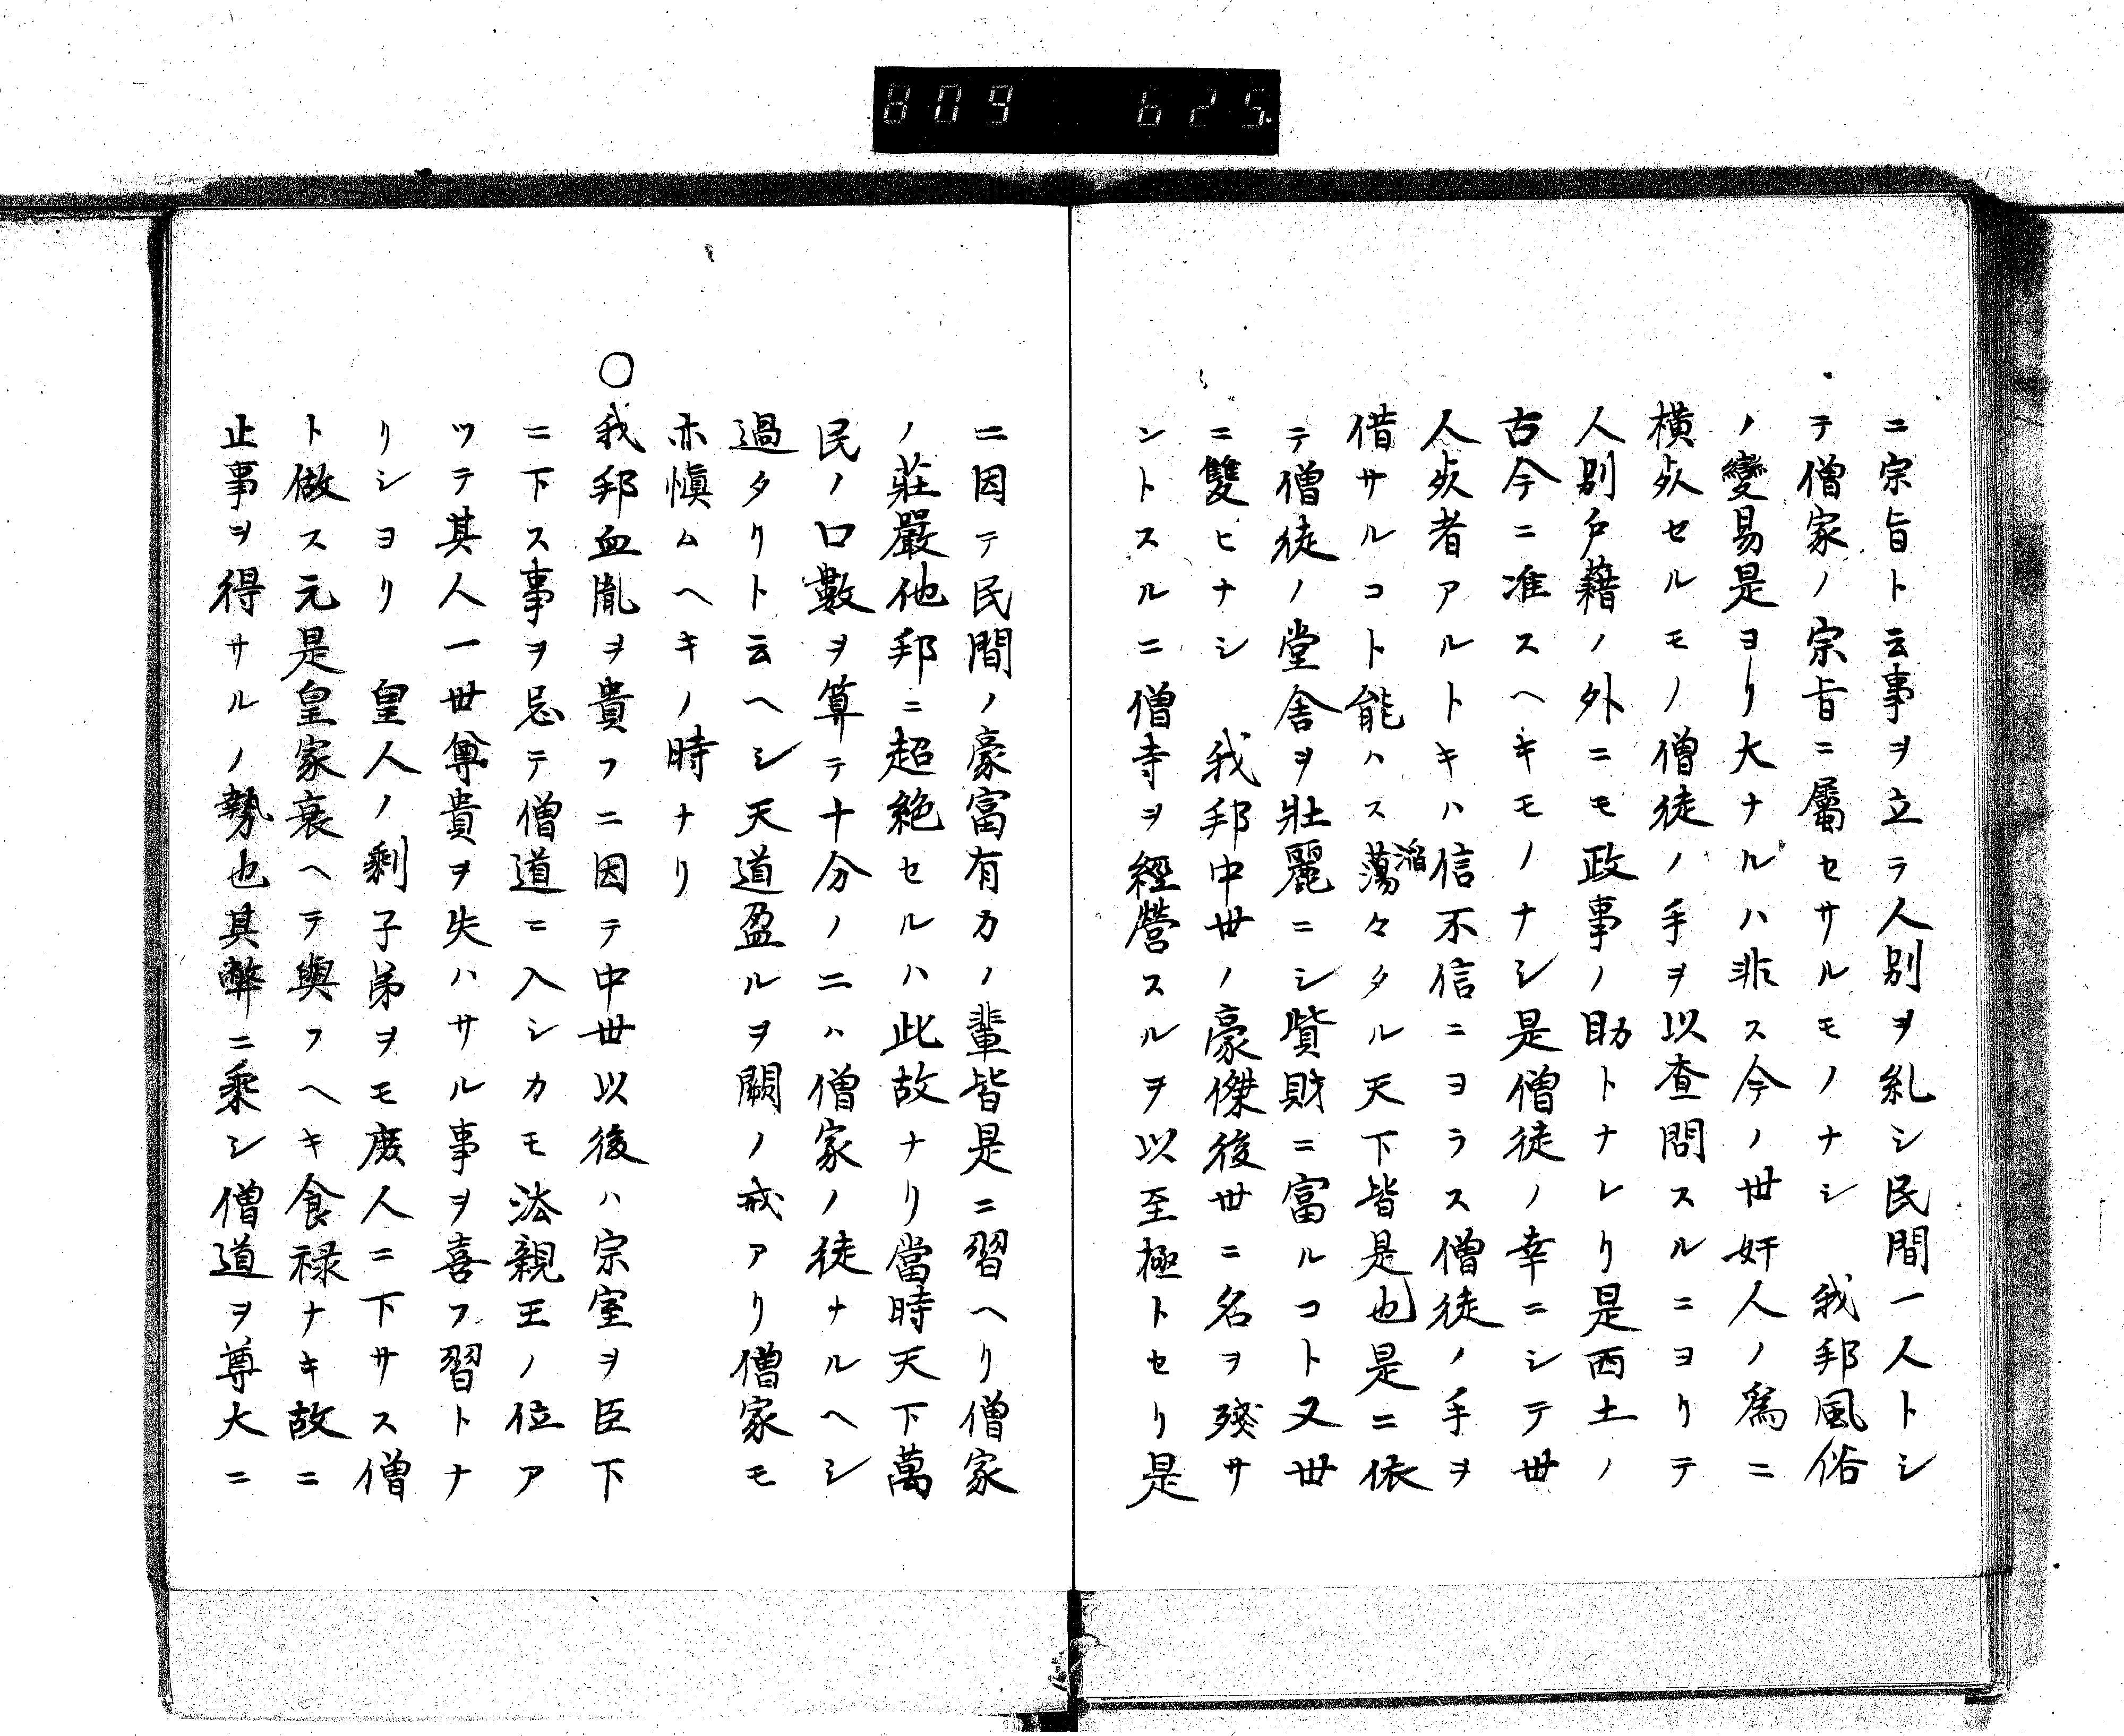 809 625
ニ宗旨ト云事ヲ立ラ人別ヲ糺シ民間一人トシ
テ僧家ノ宗旨ニ屬セサルモノナシ 我邦風俗
ノ變易是ヨリ大ナルハ非ス今ノ世奸人ノ爲ニ
横死セルモノ僧徒ノ手ヲ以査問スルニヨリテ
人別戸藉ノ外ニモ政事ノ助トナレリ是西土ノ
古今ニ准スヘキモノナシ是僧徒ノ幸ニシテ世
人死者アルトキハ信不信ニヨラス僧徒ノ手ヲ
借サルコト能ハス蕩々タル天下皆是也是ニ依
滔
テ僧徒ノ堂舎ヲ壯麗ニシ貲財ニ富ルコト又世
ニ雙ヒナシ 我邦中世ノ豪傑後世ニ名ヲ殘サ
ントスルニ僧寺ヲ經營スルヲ以至極トセリ是
ニ因テ民間ノ豪富有力ノ輩皆是ニ習ヘリ僧家
ノ莊嚴他邦ニ超絶セルハ此故ナリ當時天下萬
民ノ口數ヲ算テ十分ノ二ハ僧家ノ徒ナルヘシ
過タリト云ヘシ天道盈ルヲ闕ノ戒アリ僧家モ
亦愼ムヘキノ時ナリ
○我邦血胤ヲ貴フニ因テ中世以後ハ宗室ヲ臣下
ニ下ス事ヲ忌テ僧道ニ入シカモ法親王ノ位ア
ツテ其人一世尊貴ヲ失ハサル事ヲ喜フ習トナ
リシヨリ 皇人ノ剩子弟ヲモ庻人ニ下サス僧
ト做ス元是皇家衰ヘテ與フヘキ食禄ナキ故ニ
止事ヲ得サルノ勢也其弊ニ乘シ僧道ヲ尊大ニ